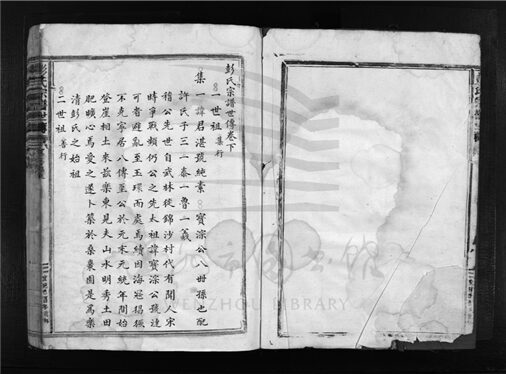 彭氏宗譜世傳卷下
一世祖 集行
集一 諱君湛號純素 寶深公八世孫也配
許氏子三 一泰一魯一義
稽公先世自武林徙錦沙村代有聞人宋
時爭戰頻仍公之先太祖諱寶深公號達
可者避亂至玉環而處焉續因海寇猖獗
不克寧居八傳至公於元末元統年間始
登崖相土來茲樂東見夫山水明秀土田
肥曠心焉愛之遂卜築於桑裏園是為樂
清彭氏之始祖
二世祖 善行
WENZHOU LIBRARY